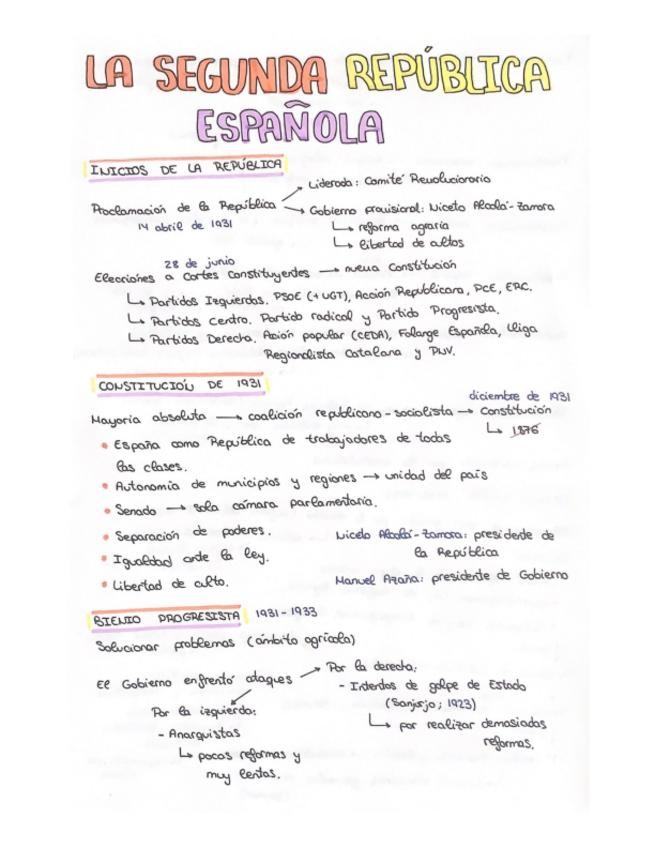 LA SEGUNDA REPÚBLICA
ESPAÑOLA
INICIOS DE LA REPÚBLICA
Liderada: Comité Revolucionario
Proclamación de la República
Gobierno provisional: Niceto Alcalá-Zamora
14 abril de 1931
↳ reforma agraria
↳ libertad de cultos
28 de junio
Elecciones a Cortes Constituyentes → nueva Constitución
↳ Partidos Izquierdas. PSOE (+UGT), Acción Republicana, PCE, ERC.
↳ Partidos Centro. Partido radical y Partido Progresista.
↳ Partidos Derecha. Acción popular (CEDA), Falange Española, Lliga
Regionalista Catalana y PNV.
CONSTITUCIÓN DE 1931
diciembre de 1931
Mayoría absoluta → coalición republicano-socialista → Constitución
↳ 1876
• España como República de trabajadores de todas
las clases.
• Autonomía de municipios y regiones → unidad del país
• Senado → sola cámara parlamentaria.
• Separación de poderes.
Niceto Alcalá-Zamora: presidente de
la República
• Igualdad ante la ley.
• Libertad de culto.
Manuel Azaña: presidente de Gobierno
BIENIO PROGRESISTA 1931-1933
Solucionar problemas (ámbito agrícola)
El Gobierno enfrentó ataques
Por la derecha:
- Intentos de golpe de Estado
(Sanjurjo; 1923)
↳ por realizar demasiadas
reformas.
Por la izquierda:
- Anarquistas
↳ pocas reformas y
muy lentas.